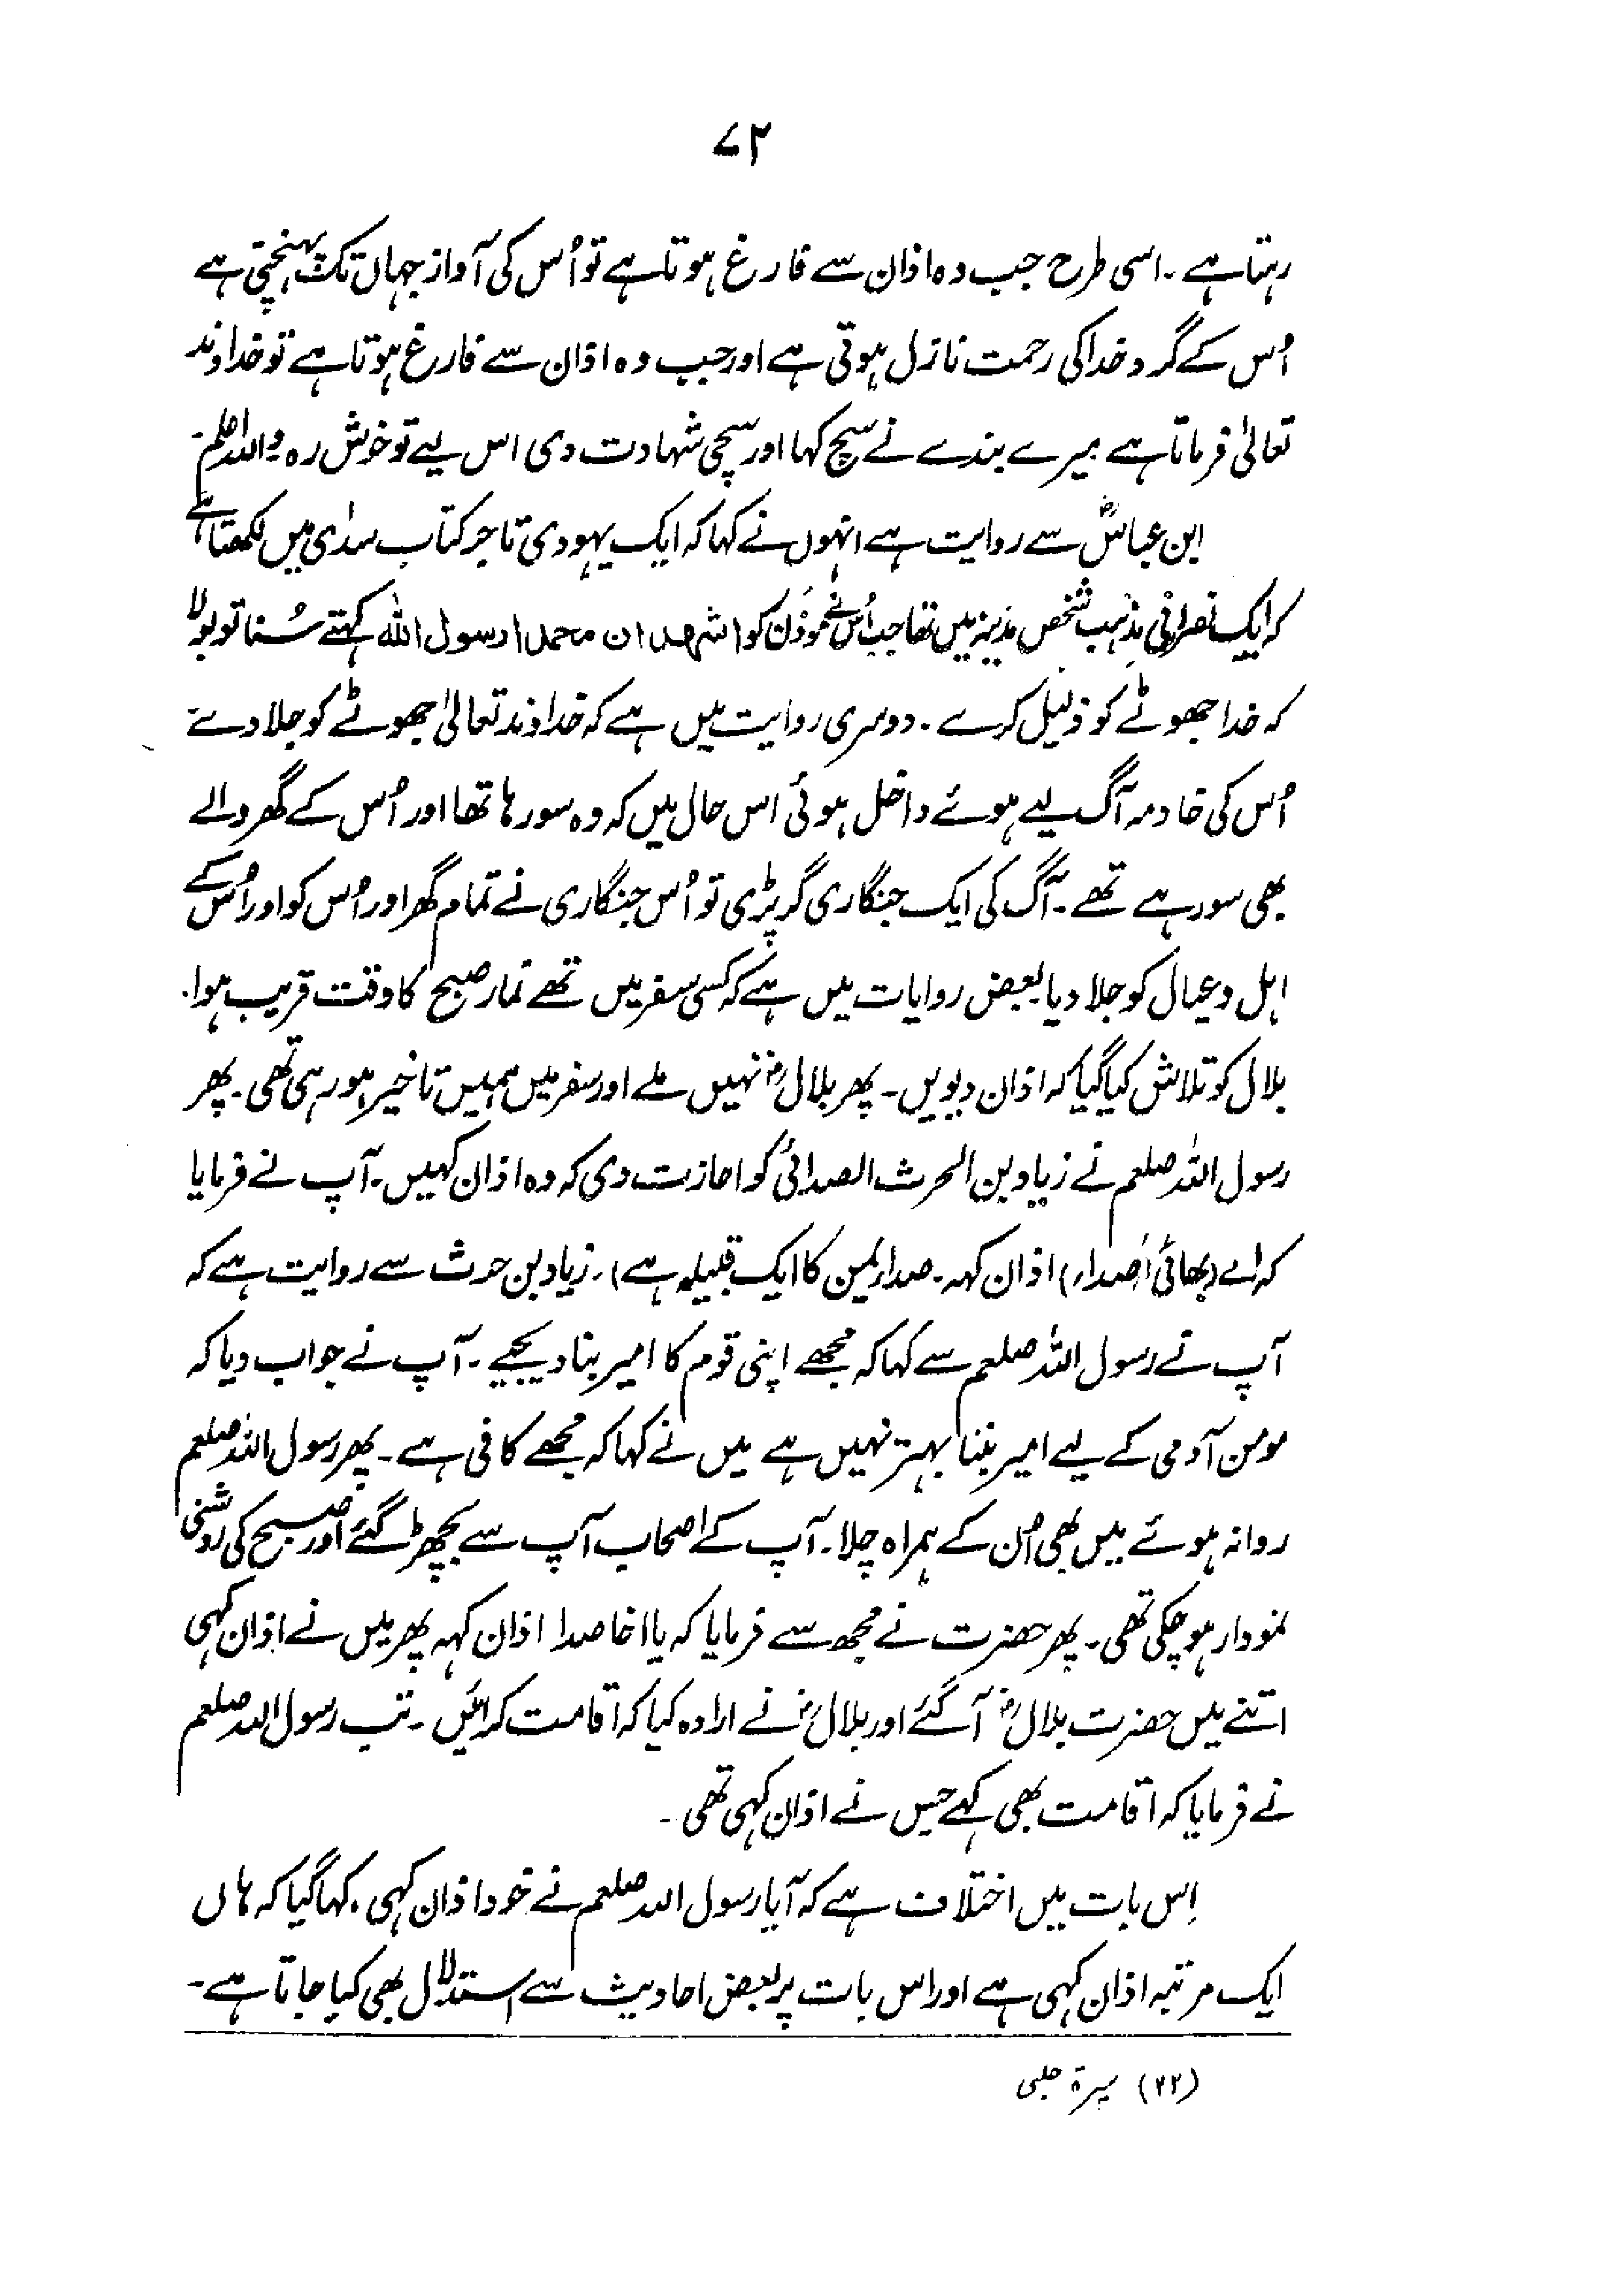 ۷۲
رہتا ہے۔ اسی طرح جب وہ اذان سے فارغ ہوتا ہے تو اُس کی آواز جہاں تک پہنچتی ہے
اُس کے گرد خدا کی رحمت نازل ہوتی ہے اور جب وہ اذان سے فارغ ہوتا ہے تو خداوند
تعالیٰ فرماتا ہے میرے بندے نے سچ کہا اور سچی شہادت دی اس لیے تو خوش رہ واللہ اعلم۔
ابن عباسؓ سے روایت ہے انہوں نے کہا کہ ایک یہودی تاجر کتاب سدّی میں لکھتا ہے
کہ ایک نصرانی مذہب شخص مدینہ میں تھا جب اُس نے موذن کو اشھد ان محمدا رسول اللہ کہتے سُنا تو بولا
کہ خدا جھوٹے کو ذلیل کرے۔ دوسری روایت میں ہے کہ خداوند تعالیٰ جھوٹے کو جلا دے۔
اُس کی خادمہ آگ لیے ہوئے داخل ہوئی اس حال میں کہ وہ سو رہا تھا اور اُس کے گھر والے
بھی سو رہے تھے۔ آگ کی ایک چنگاری گر پڑی تو اُس چنگاری نے تمام گھر اور اُس کو اور اُس کے
اہل و عیال کو جلا دیا بعض روایات میں ہے کہ کسی سفر میں تھے نماز صبح کا وقت قریب ہوا۔
بلال کو تلاش کیا گیا کہ اذان دیویں۔ پھر بلالؓ نہیں ملے اور سفر میں ہمیں تاخیر ہو رہی تھی۔ پھر
رسول اللہ صلعم نے زیاد بن الحرث الصدائی کو اجازت دی کہ وہ اذان کہیں۔ آپ نے فرمایا
کہ اے (بھائی اُصداء) اذان کہہ۔ صداء یمن کا ایک قبیلہ ہے)۔ زیاد بن حرث سے روایت ہے کہ
آپ نے رسول اللہ صلعم سے کہا کہ مجھے اپنی قوم کا امیر بنا دیجیے۔ آپ نے جواب دیا کہ
مومن آدمی کے لیے امیر بننا بہتر نہیں ہے میں نے کہا کہ مجھے کافی ہے۔ پھر رسول اللہ صلعم
روانہ ہوئے میں بھی اُن کے ہمراہ چلا۔ آپ کے اصحاب آپ سے بچھڑ گئے اور صبح کی روشنی
نمودار ہو چکی تھی۔ پھر حضرت نے مجھ سے فرمایا کہ یا اخا صدا اذان کہہ پھر میں نے اذان کہی
اتنے میں حضرت بلالؓ آ گئے اور بلالؓ نے ارادہ کیا کہ اقامت کرائیں۔ تب رسول اللہ صلعم
نے فرمایا کہ اقامت بھی کہے جس نے اذان کہی تھی۔
اِس بات میں اختلاف ہے کہ آیا رسول اللہ صلعم نے خود اذان کہی۔ کہا گیا کہ ہاں
ایک مرتبہ اذان کہی ہے اور اس بات پر بعض احادیث سے استدلال بھی کیا جاتا ہے۔
(۲۲) سیرۃ حلبی